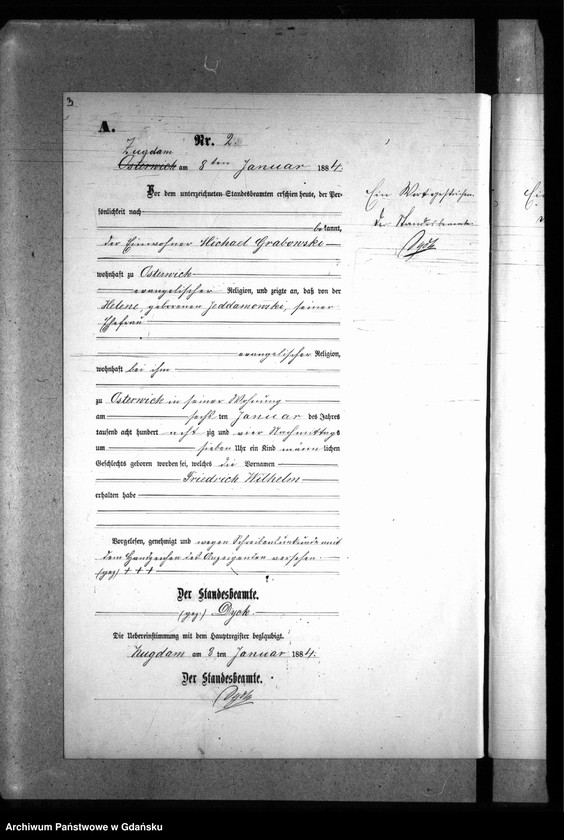 3
A.
Nr. 2.
Zugdam
Osterwick am 8ten Januar 1884.
Vor dem unterzeichneten Standesbeamten erschien heute, der Per-
sönlichkeit nach
bekannt,
der Einwohner Michael Grabowski
wohnhaft zu Osterwick
evangelischer Religion, und zeigte an, daß von der
Helene, geborenen Jeddamowski, seiner
Ehefrau
evangelischer Religion,
wohnhaft bei ihm
zu Osterwick in seiner Wohnung
am sechsten Januar des Jahres
tausend acht hundert achtzig und vier Nachmittags
um sieben Uhr ein Kind männlichen
Geschlechts geboren worden sei, welches die Vornamen
Friedrich Wilhelm
erhalten habe
Vorgelesen, genehmigt und wegen Schreibensunkunde mit
dem Handzeichen des Anzeigenden versehen
(gez) + + +
Der Standesbeamte.
(gez) Dyck.
Die Uebereinstimmung mit dem Hauptregister beglaubigt.
Zugdam am 8ten Januar 1884.
Der Standesbeamte.
Dyck
Ein Wort gestrichen.
Der Standesbeamte
Dyck
Archiwum Państwowe w Gdańsku